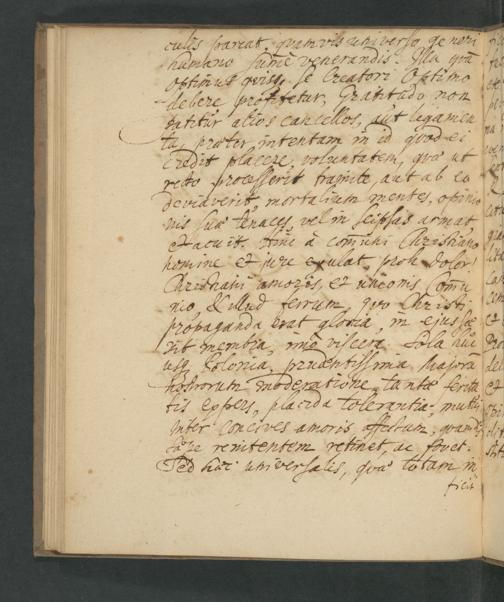 culis parcat, quamvis universo generi
humano sumē venerandis. Illa qua
optimus quisq, se Creatori Optimo
debere profitetur, Gratitudo non
patitur alios cancellos, aut ligamen
ta, præter intentam in id quod ei
credit placere, voluntatem, quæ ut
recto processerit tramite, aut ab eo
deviaverit, mortalium mentes, opinio
nis suæ tenaces, vel in seipsas armat
et acuit. Hinc à com̄uni Christiano
homine et jure exulat, proh dolor!
Christiani amoris, et unionis Com̄u
nio, & illud ferrum, quo Christi
propaganda erat gloria, in ejus
rit membra, imò viscera. Sola huc
usq, Polonia, prudentissima Majorū
nostrorum moderatione, tantæ ferita
tis expers, placida tolerantia, mutuū
inter concives amoris affectum, quamvis
renitentem retinet, ac fovet.
Sed hæc universalis, quæ totam in
ficit